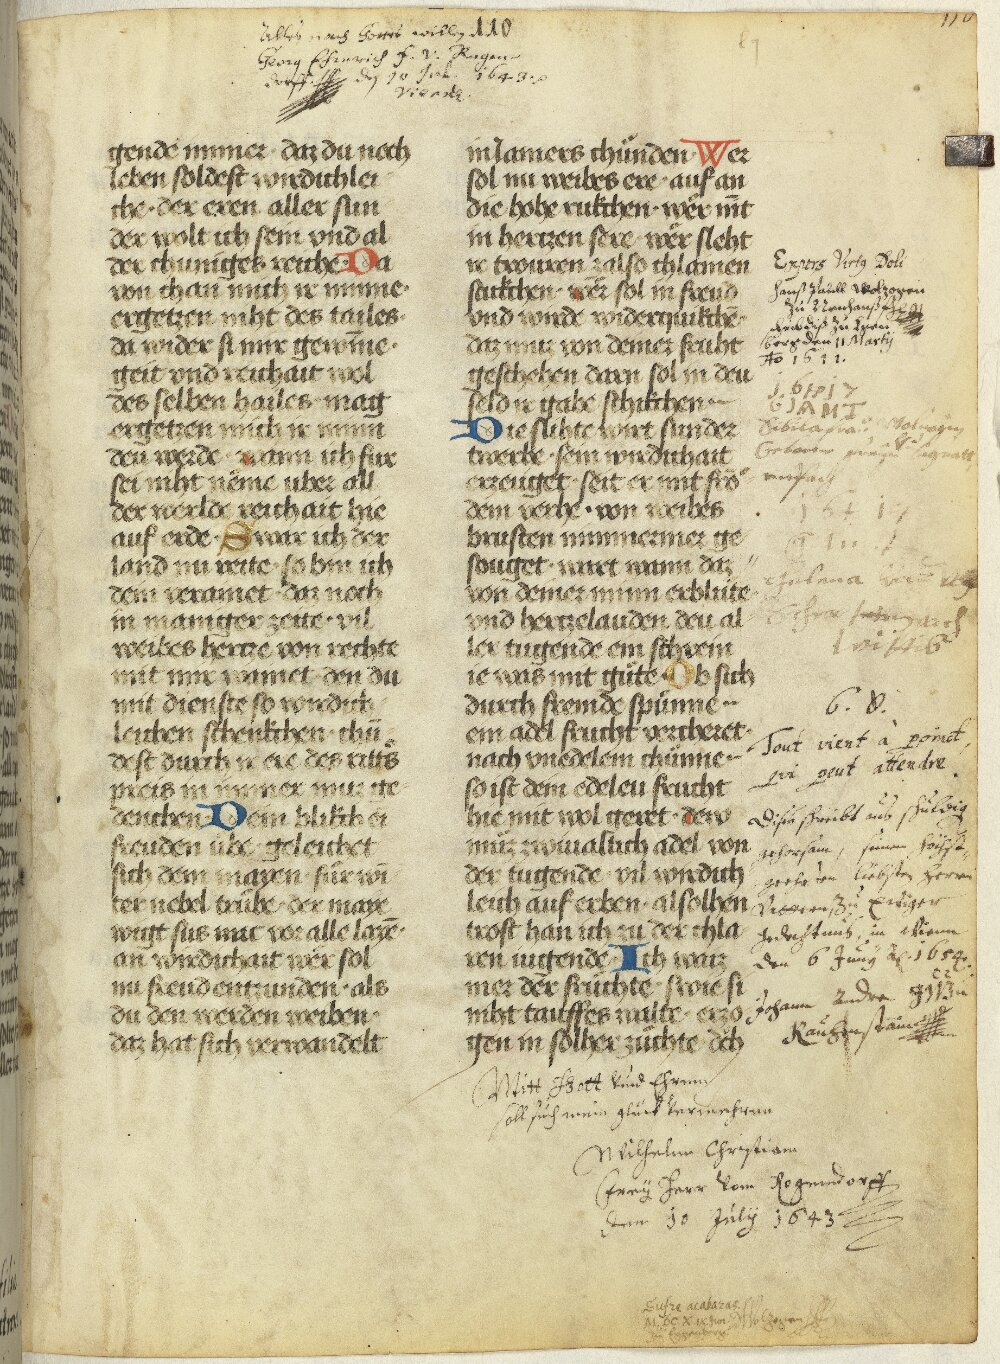 Alles nach Gottes willen 110
Georg Ehrnreich H. V. Rogen-
dorff den 10 Jul. 1643.
110
gende immer · daz du noch
leben soldest wirdichlei
che · der eren aller sun
der wolt ich sein vnd al
der chuniges reiche · Da
von chan mich ir minne ·
ergetzen niht des tailes ·
da wider si mir gewinne ·
geit vnd reichait wol
des selben hailes · mag
ergetzen mich ir minn
deu werde · wann ich fur
sei niht neme vber all
der werlde reichait hie
auf erde · Swar ich der
land nu reite · so bin ich
dem veramet · daz noch
in maniger zeite · vil
weibes hertze von rechte
mit mir iamet · den du
mit dienste so wirdich
leichen schenkchen · chu
dest durch ir ere des ritters
preis in immer muz ge
denchen · Dein blikch ei
freuden vbe · geleichet
sich dem mayen · fur wi
ter nebel trube · der mare
wigt sus mit vor alle laie ·
an wirdichait wer sol
nu freud entzunden · als
du den werden weiben ·
daz hat sich verwandelt
in Iamers chunden · Wer
sol nu weibes ere · auf an
die hohe rukchen · wer mit
in hertzen sere · wer sleht
ir trouren zalso chlainen
stukchen · wer sol in freud
vnd wirde widerquikchen
daz muz von deiner fruht
geschehen darn sol in deu
seld ir gabe schikchen
Die slihte wirt sunder
twerhe · sein wirdichait
erzeuget · seit er mit fro
dem verhe · von weibes
brusten nimmermer ge
souget · wirt wann daz
von deiner minn erblute
vnd hertzelauden deu al
ler tugende ein schrein
ie was mit gute · Ob sich
durch fremde spunne
ein adel frucht vercheret ·
nach vnedelem chunne
so ist dein edeleu frucht
hie mit wol geret · dew
muz zwiualtich adel von
der tugende · vil wirdich
leich auf erben · alsolhen
trost han ich zu der chla
ren iugende · Ich waiz
mer der fruchte · swie si
niht tauffes walte · erzo
gen in solher zuchte doch
Expers Virtus Doli
Hans Paull Wolzogen
zu Neuhauß
den 11 Marty
Ao 1611.
1. 6 1 P 1 7
G I A M T
6. V.
Tout vient à poinct,
qui peut attendre.
Dises schreibt aus schuldig
gehorsam, seinem höchst-
geehrten liebsten Herrn
Vattern zu Ewiger
gedechtnus, in Wienn
den 6 Juny Ao. 1654
Johann Andre
Rauchenstain
Mitt Gott vnnd Ehren
soll sich mein glück vermehren
Wilhelm Christian
Frey Herr von Rogendorff
den 10 July 1643